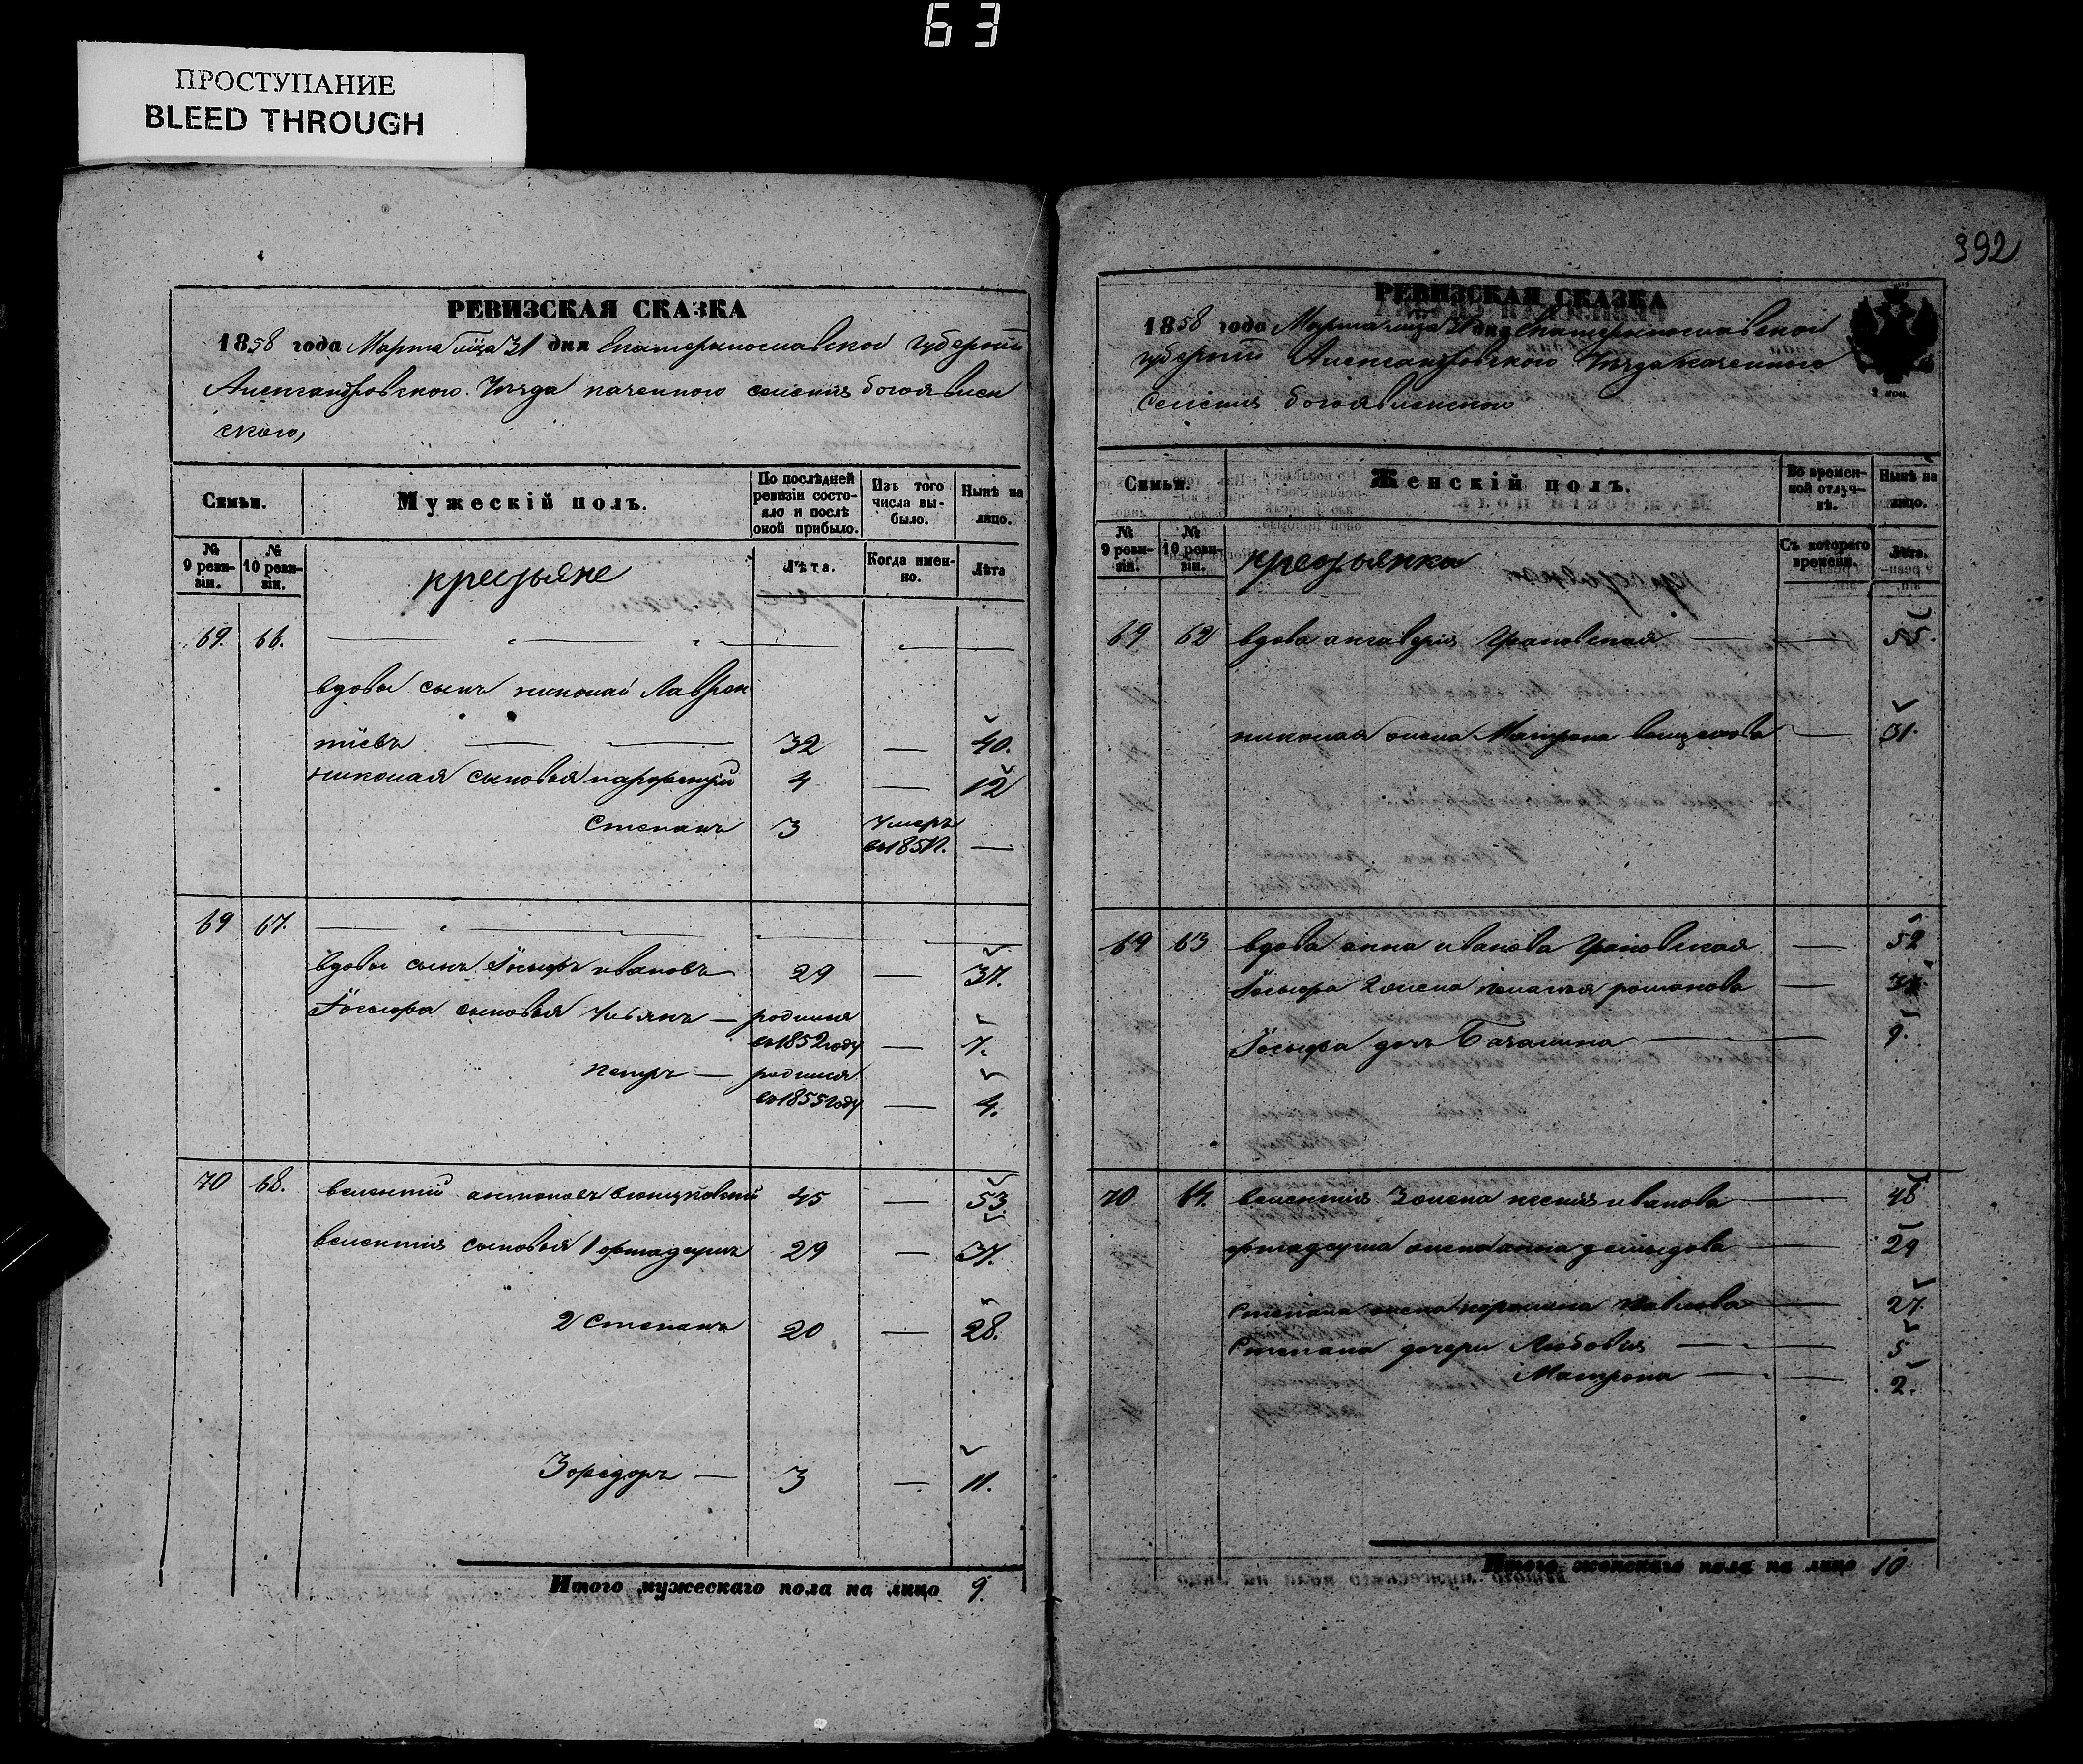 63
ПРОСТУПАНИЕ
BLEED THROUGH
РЕВИЗСКАЯ СКАЗКА
1858 года Марта мца 31 дня Екатеринославской Губернии
Александровского Уезда казенного селения богоявлен
ского,
Семьи.
Мужескій полъ.
По послѣдней ревизіи состояло и послѣ оной прибыло.
Изъ того числа выбыло.
Нынѣ на лицо.
№ 9 ревизіи.
№ 10 ревизіи.
крестьяне
Лѣта.
Когда именно.
Лѣта
69. 66.
вдовы сынъ николай Лаврен
тіевъ 32 — 40.
николая сыновья парфентій 4 — 12
Степанъ 3 Умеръ
въ 185 —
69 67.
вдовы сынъ Іосифъ ивановъ 29 — 37.
Іосифа сыновья Ульянъ — родился
въ 1852 году — 7.
петръ — родился
въ 1855 году — 4.
70 68. велентій антоновъ 45 — 53.
велентія сыновья 1 29 — 37.
2 Степанъ 20 — 28.
3 федоръ — 3 — 11.
Итого мужескаго пола на лицо 9.
392
РЕВИЗСКАЯ СКАЗКА
1858 года Марта мца 31 дня Екатеринославской
губернии Александровского Уезда казенного
Селения богоявленского
Семьи.
Женскій полъ.
Во временной отлучкѣ.
Нынѣ на лицо.
№ 9 ревизіи.
№ 10 ревизіи.
крестьянки
Съ котораго времени.
Лѣта.
69 62 вдова — 55.
николая жена Матрона — 31.
69 63 вдова анна иванова — 52
Іосифа 2 жена романова —
Іосифа дочь — 9.
70 64. велентія 3 жена ксенія иванова — 48
жена анна демидова — 29
Степана жена Павлова — 27.
Степана дочери Любовія — 5
Матрона — 2.
Итого женскаго пола на лицо 10